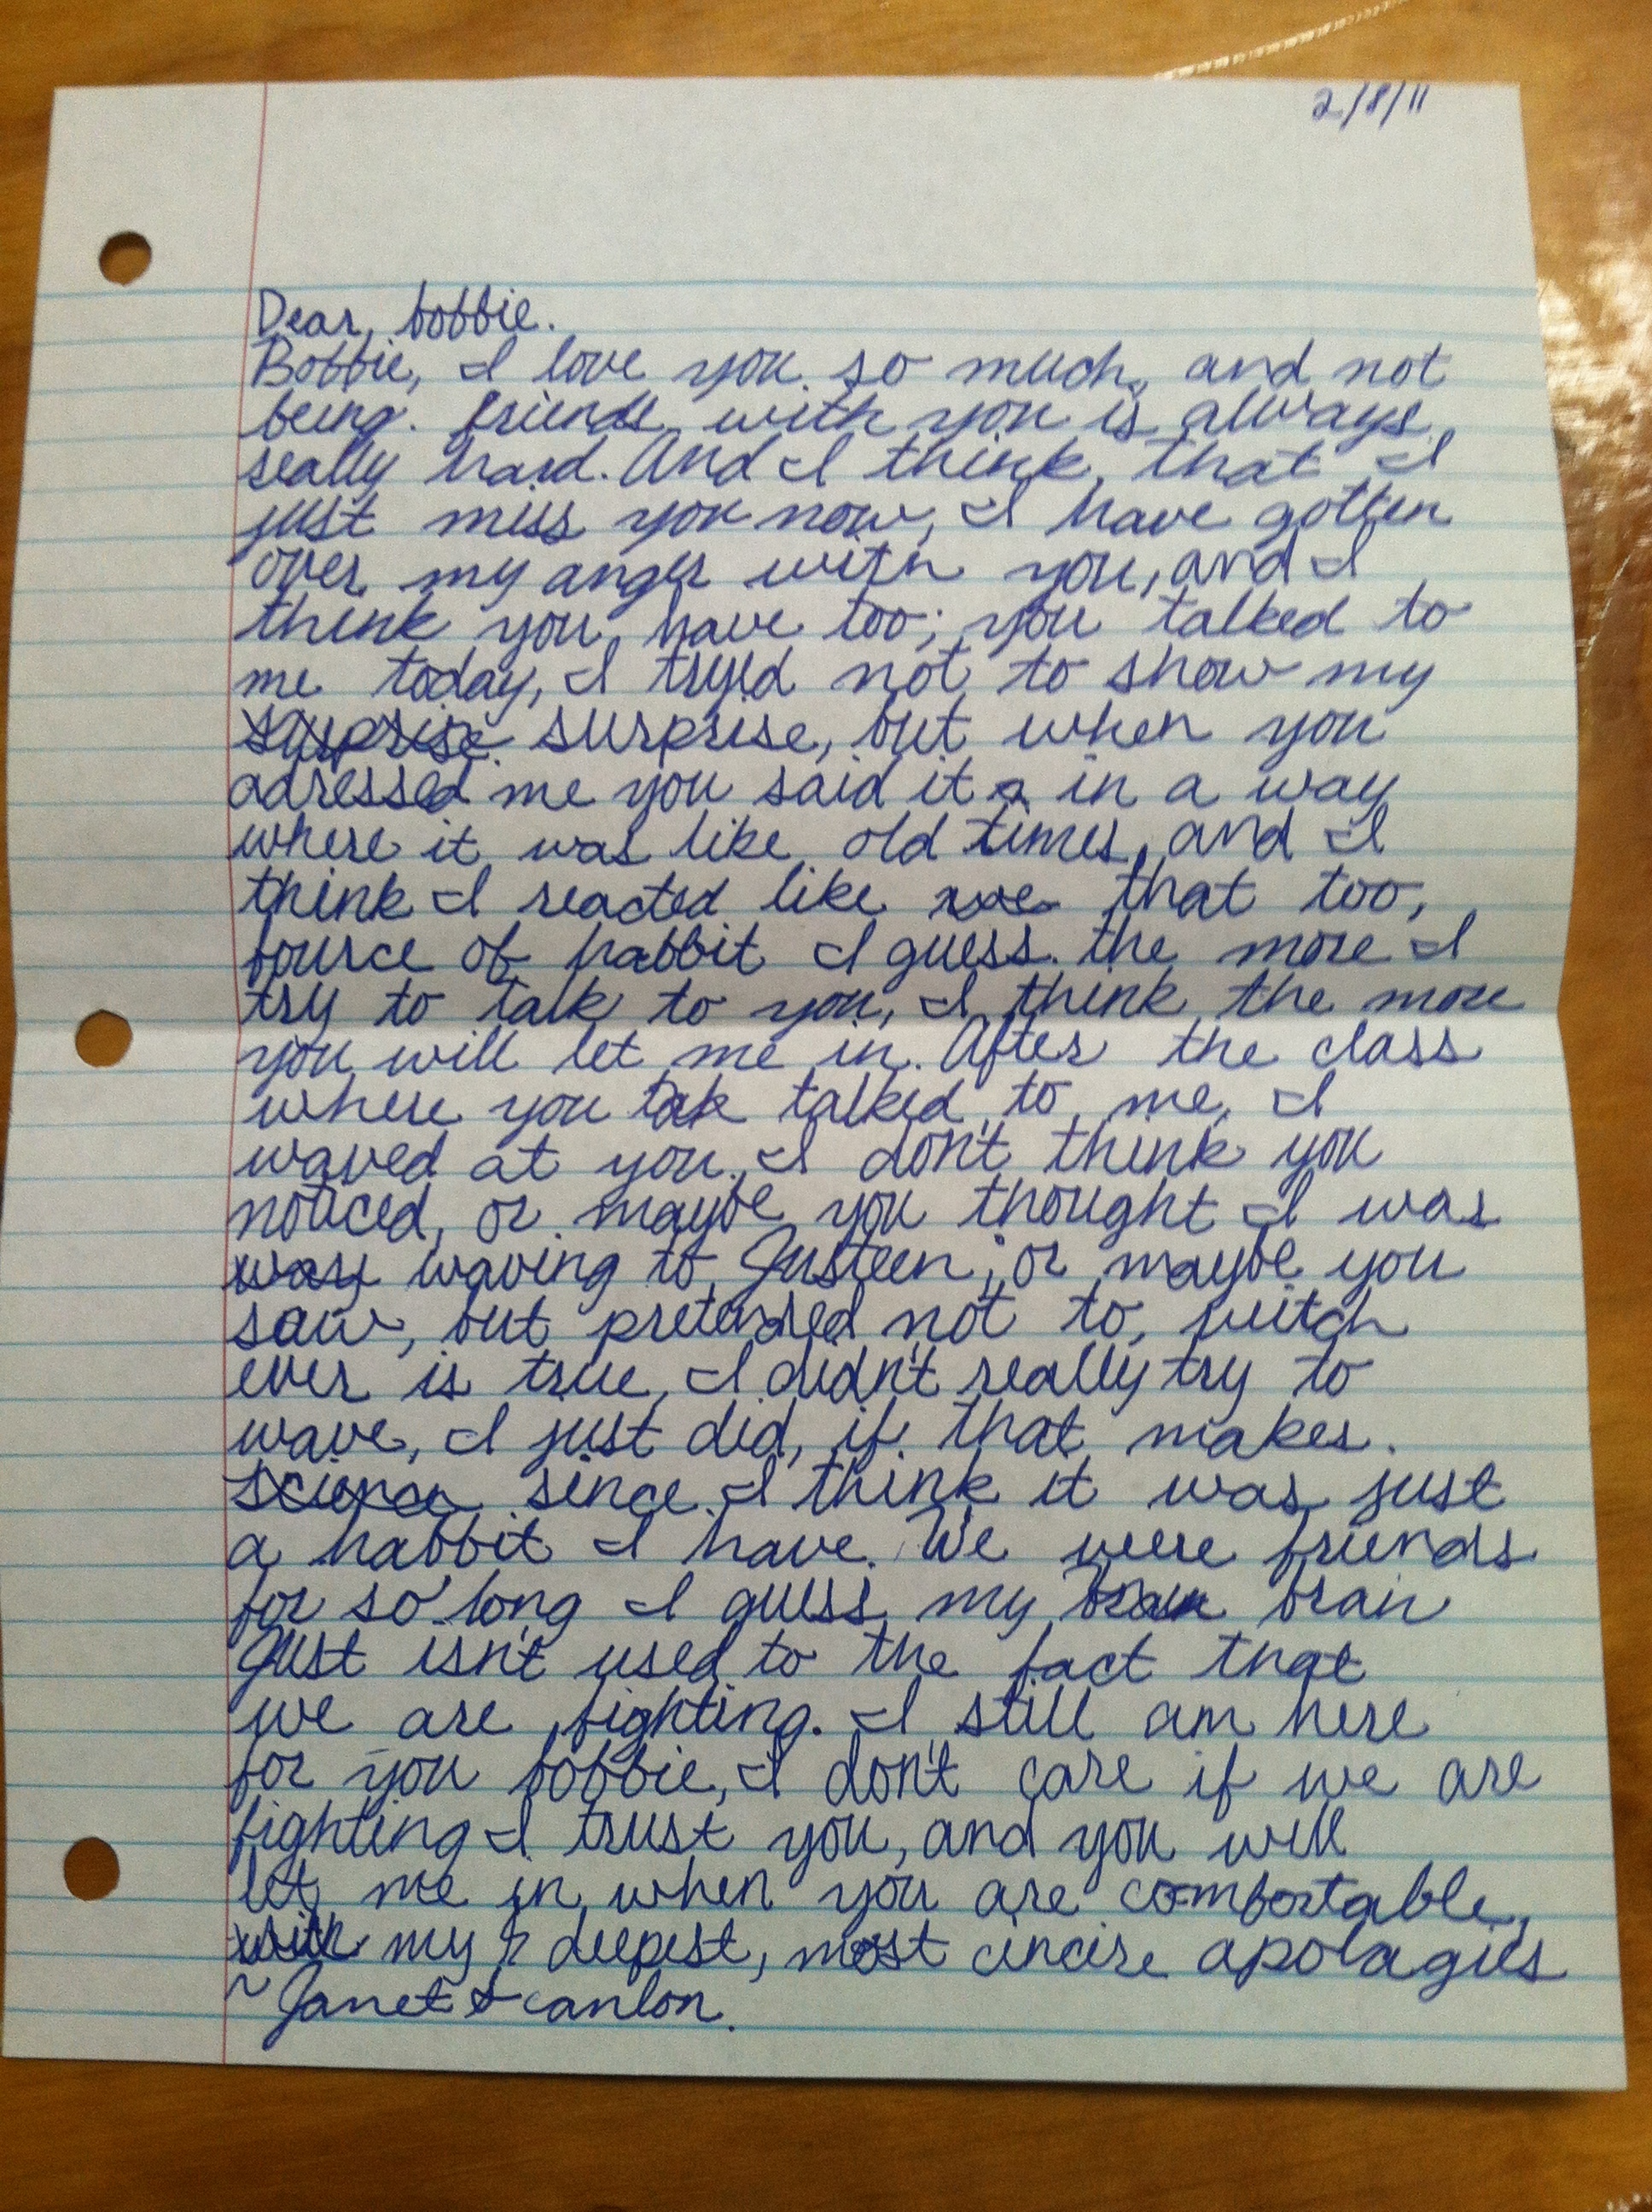 2/8/11
Dear, bobbie.
Bobbie, I love you so much, and not
being friends with you is always
really hard. And I think, that I
just miss you now, I have gotten
over my anger with you, and I
think you have too; you talked to
me today, I tryed not to show my
surprise surprise, but when you
adressed me you said it a in a way
where it was like old times, and I
think I reacted like that too,
fource of habbit I guess. the more I
try to talk to you, I think the more
you will let me in. After the class
where you tak talked to me, I
waved at you. I don't think you
noticed, or maybe you thought I was
wav waving to Justeen; or maybe you
saw, but pretended not to, witch
ever is true, I didn't really try to
wave, I just did, if that makes.
science since I think it was just
a habbit I have. We were friends
for so long I guess my brain
just isn't used to the fact that
we are fighting. I still am here
for you bobbie, I don't care if we are
fighting I trust you, and you will
let me in when you are comfortable,
with my deepest, most cincire apolagies
~ Janet Scanlon.